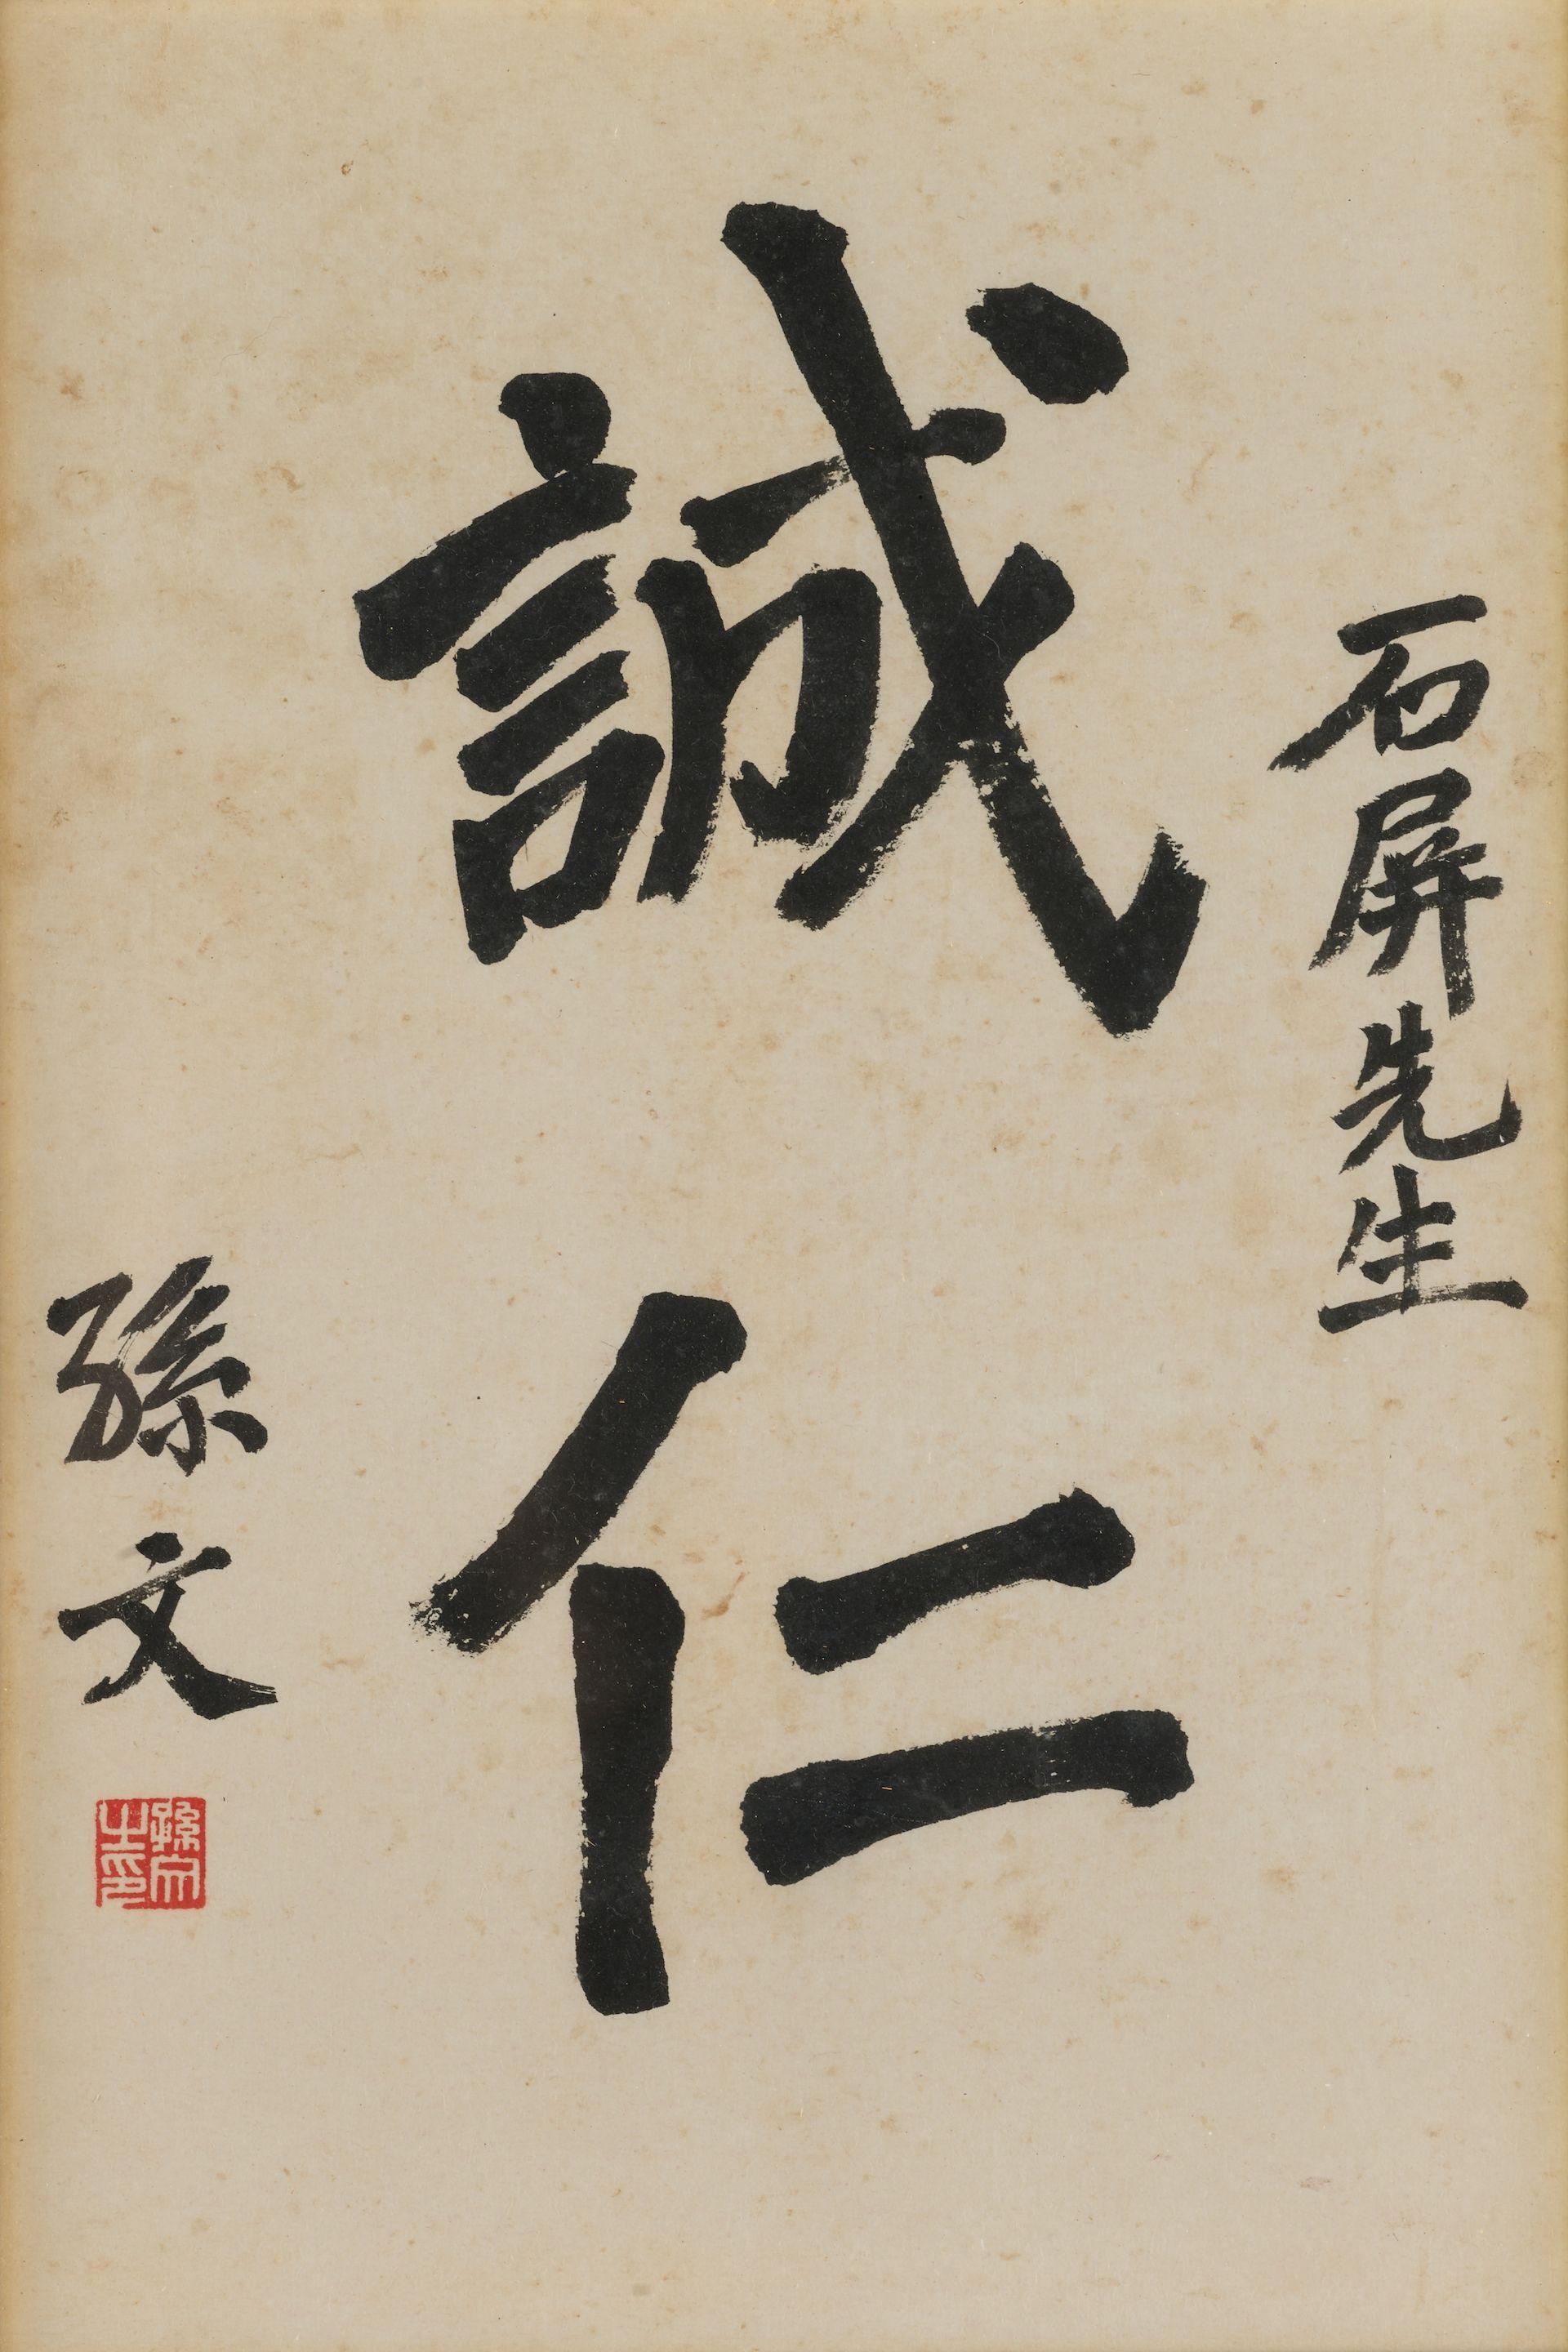 石屏先生
誠仁
孫文
孫文之印